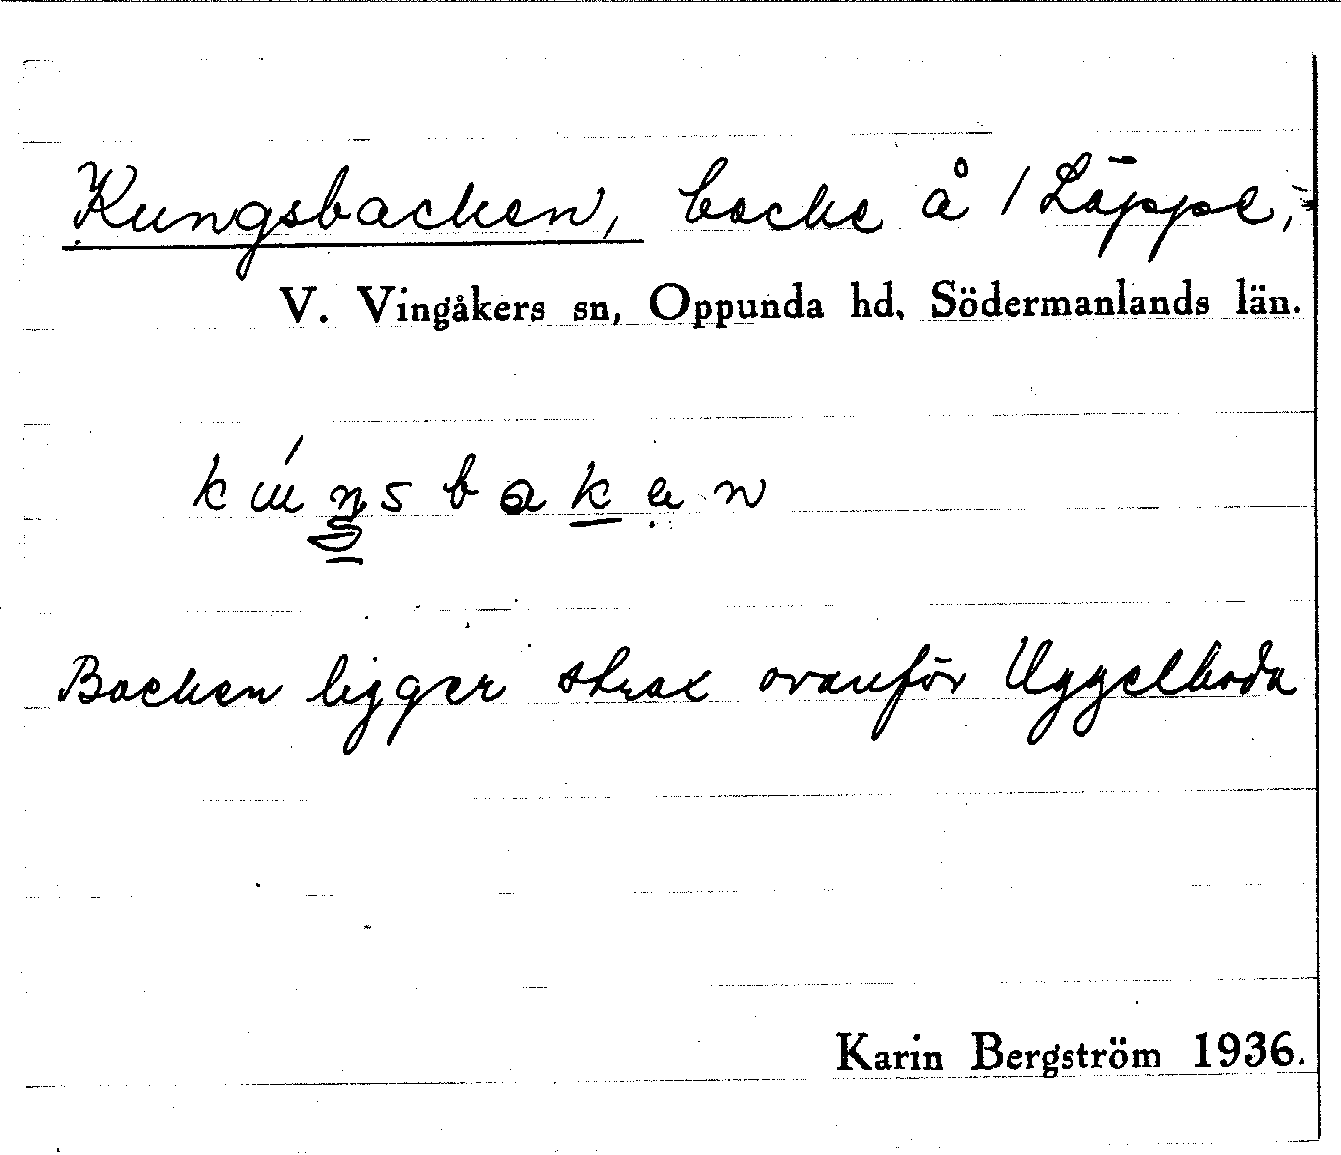 Kungsbacken, backe å / Läppe,
V. Vingåkers sn, Oppunda hd, Södermanlands län.
kúŋsbakan
Backen ligger strax ovanför Uggelboda
Karin Bergström 1936.